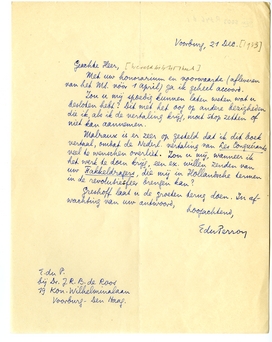 Voorburg, 21 Dec. [1933]
Geachte Heer,
Met uw honorarium en voorwaarde (afleveren
van het Ms. vóór 1 April) ga ik geheel accoord.
Zou u mij spoedig kunnen laten weten wat u
besloten hebt? Dit met het oog op andere bezigheden
die ik, als ik de vertaling krijg, moet stop zetten of
niet kan aannemen.
Malraux is er zeer op gesteld dat ik dit boek
vertaal, omdat de Nederl. vertaling van Les Conquérants
veel te wenschen overliet. Zou u mij, wanneer ik
het werk te doen krijg, een ex. willen zenden van
uw Fakkeldragers, die mij in Hollandsche termen
in de revolutiesfeer brengen kan?
Greshoff laat u de groeten terug doen. In af-
wachting van uw antwoord,
hoogachtend,
EduPerron
E du P.
bij Dr. J.R.B. de Roos
Kon. Wilhelminalaan
Voorburg - Den Haag.